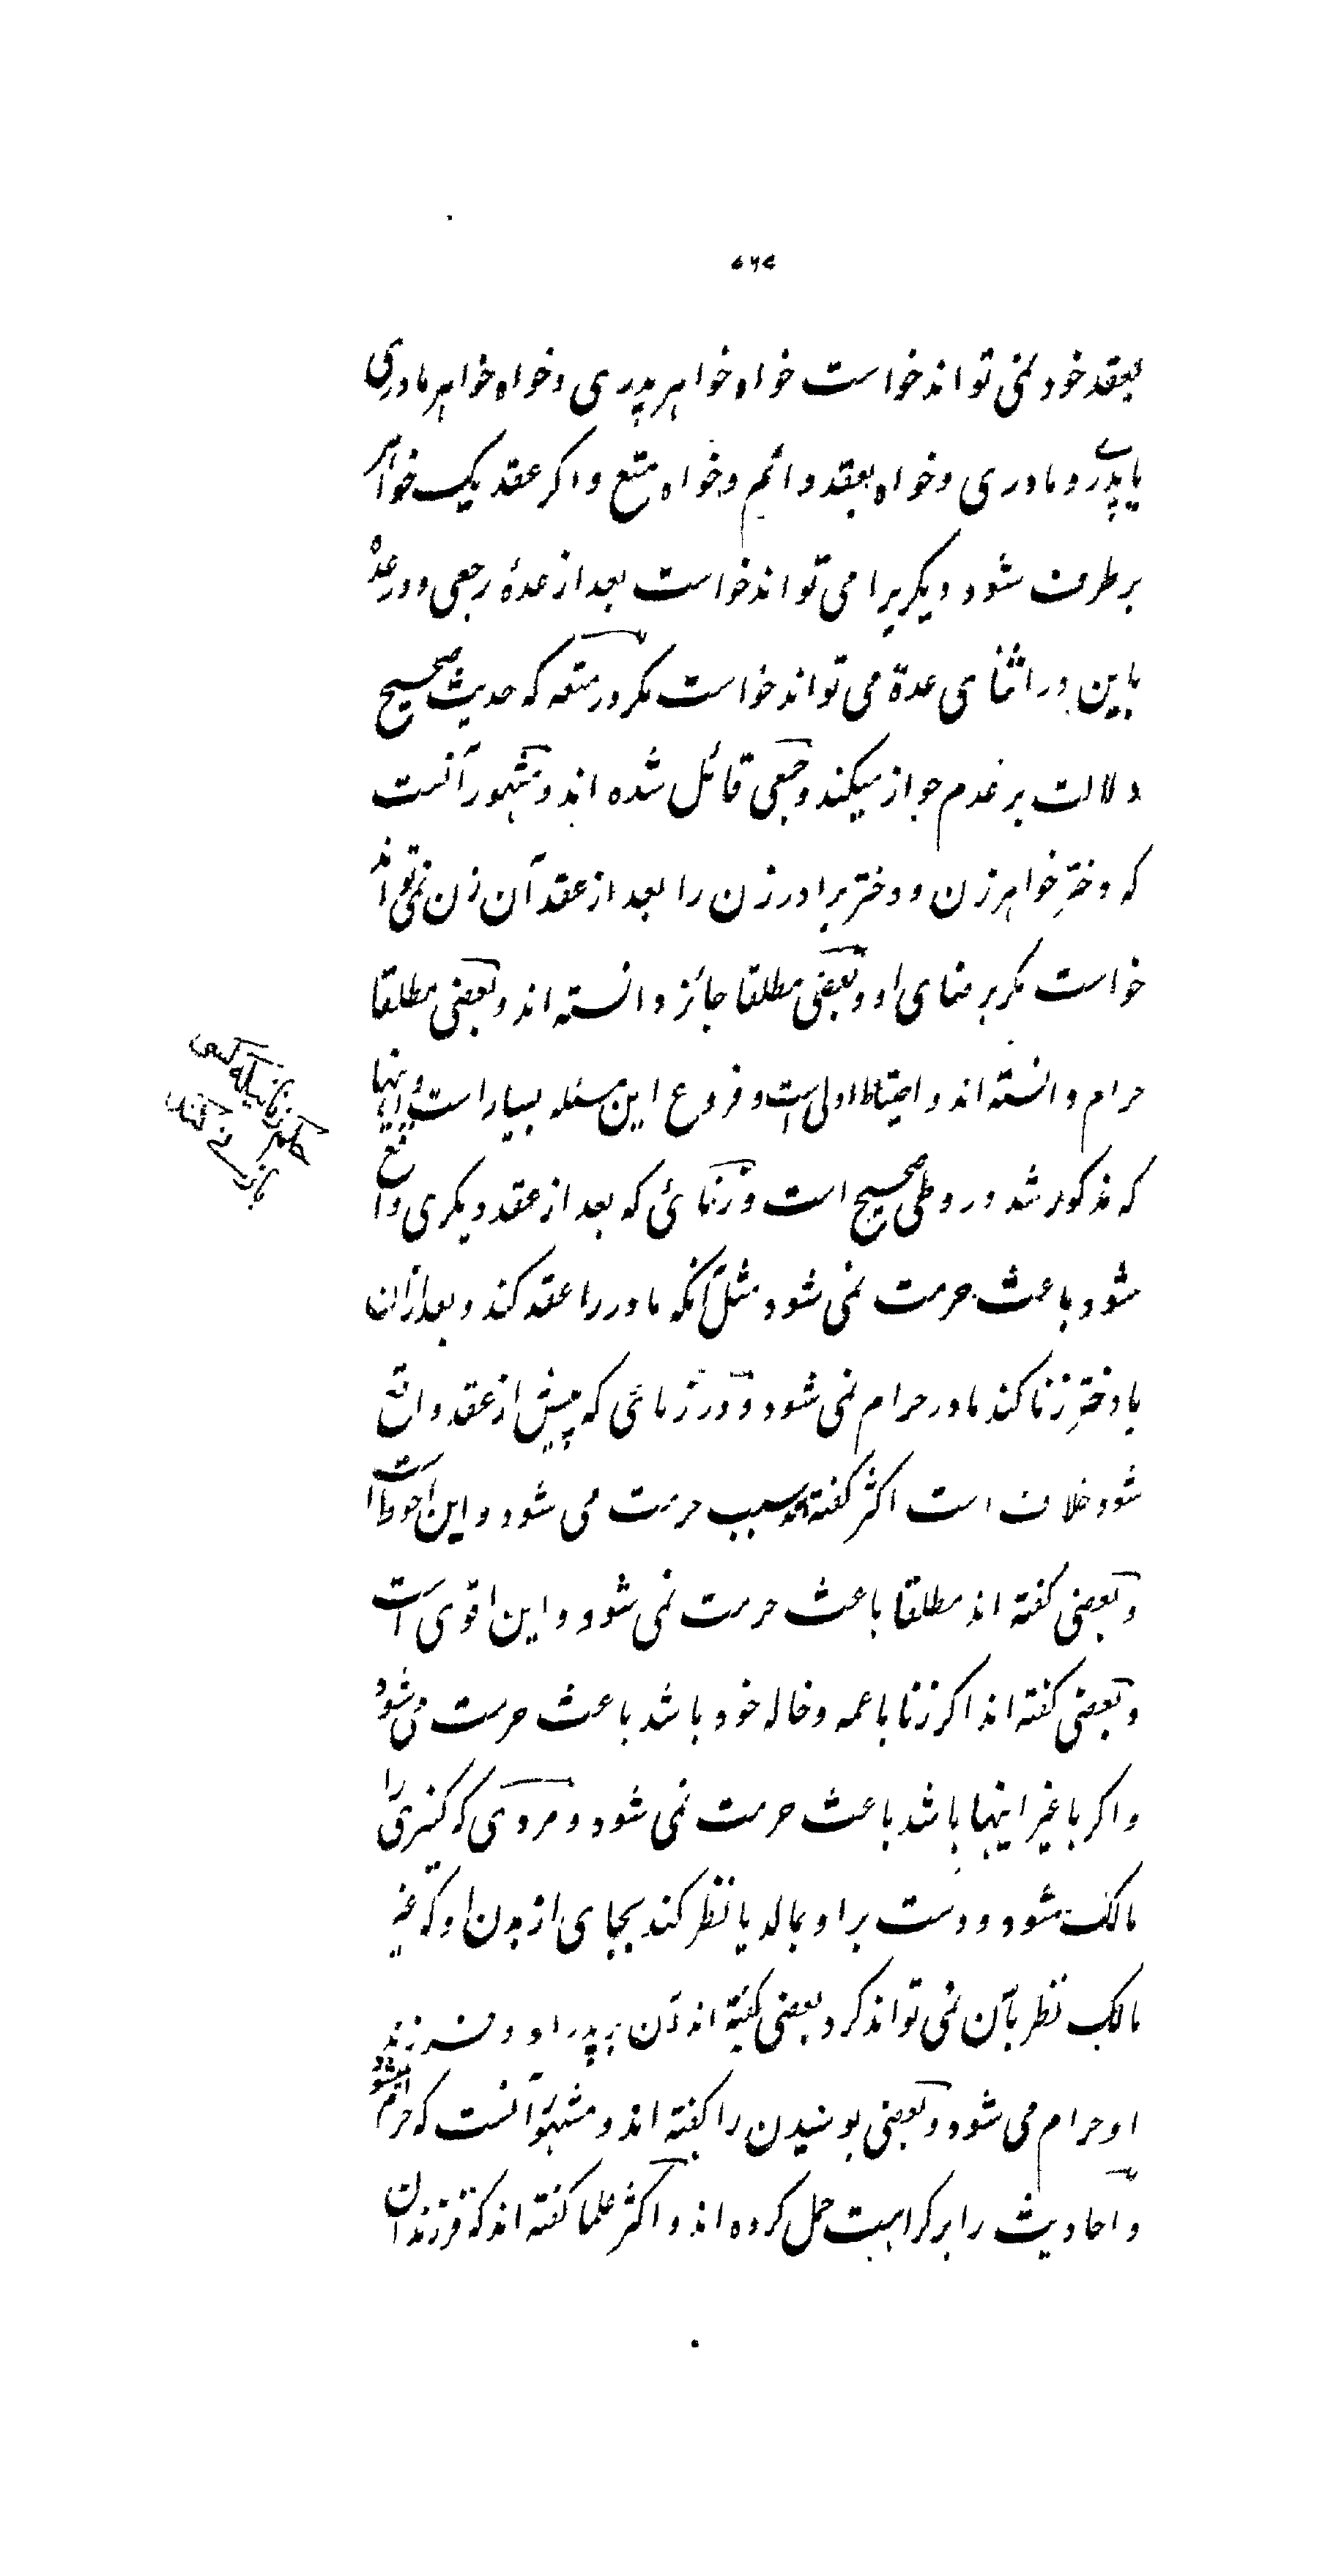 ۵۶۵
بعقد خود نمی تواند خواست خواه خواهر پدری و خواه خواهر مادری
یا پدری و مادری و خواه بعقد دائم و خواه متع و اکر عقد یک خواهر
برطرف شود دیکریرا می تواند خواست بعد از عدهٔ رجعی و در عدهٔ
باین در اثنای عدة می تواند خواست مکر در متعه که حدیث صحیح
دلالت بر عدم جواز میکند و جمعی قائل شده اند و مشهور آنست
که دختر خواهر زن و دختر برادر زن را بعد از عقد آن زن نمی تواند
خواست مکر برضای او و بعضی مطلقا جائز دانسته اند و بعضی مطلقا
حرام دانسته اند و احتیاط اولی است و فروع این مسئله بسیار است و اینها
که مذکور شد در وطی صحیح است و زنائی که بعد از عقد دیکری واقع
شود باعث حرمت نمی شود مثل آنکه مادر را عقد کند و بعد ازان
با دختر زنا کند مادر حرام نمی شود و در زنائی که پیش از عقد واقع
شود خلاف است اکثر کفته اند سبب حرمت می شود و این احوط است
و بعضی کفته اند مطلقا باعث حرمت نمی شود و این اقوی است
و بعضی کفته اند اکر زنا با عمه و خاله خود باشد باعث حرمت می شود
و اکر با غیر اینها باشد باعث حرمت نمی شود و مردی که کنیزی را
مالک شود و دست بر او بمالد یا نظر کند بجای از بدن او که غیر
مالک نظر بآن نمی تواند کرد بعضی کفته اند آن بر پدر او و فرزند
او حرام می شود و بعضی بوسیدن را کفته اند و مشهور آنست که حرام نمیشود
و احادیث را بر کراهیت حمل کرده اند و اکثر علما کفته اند که فرزندان
حکم زنانیکه کسی
با